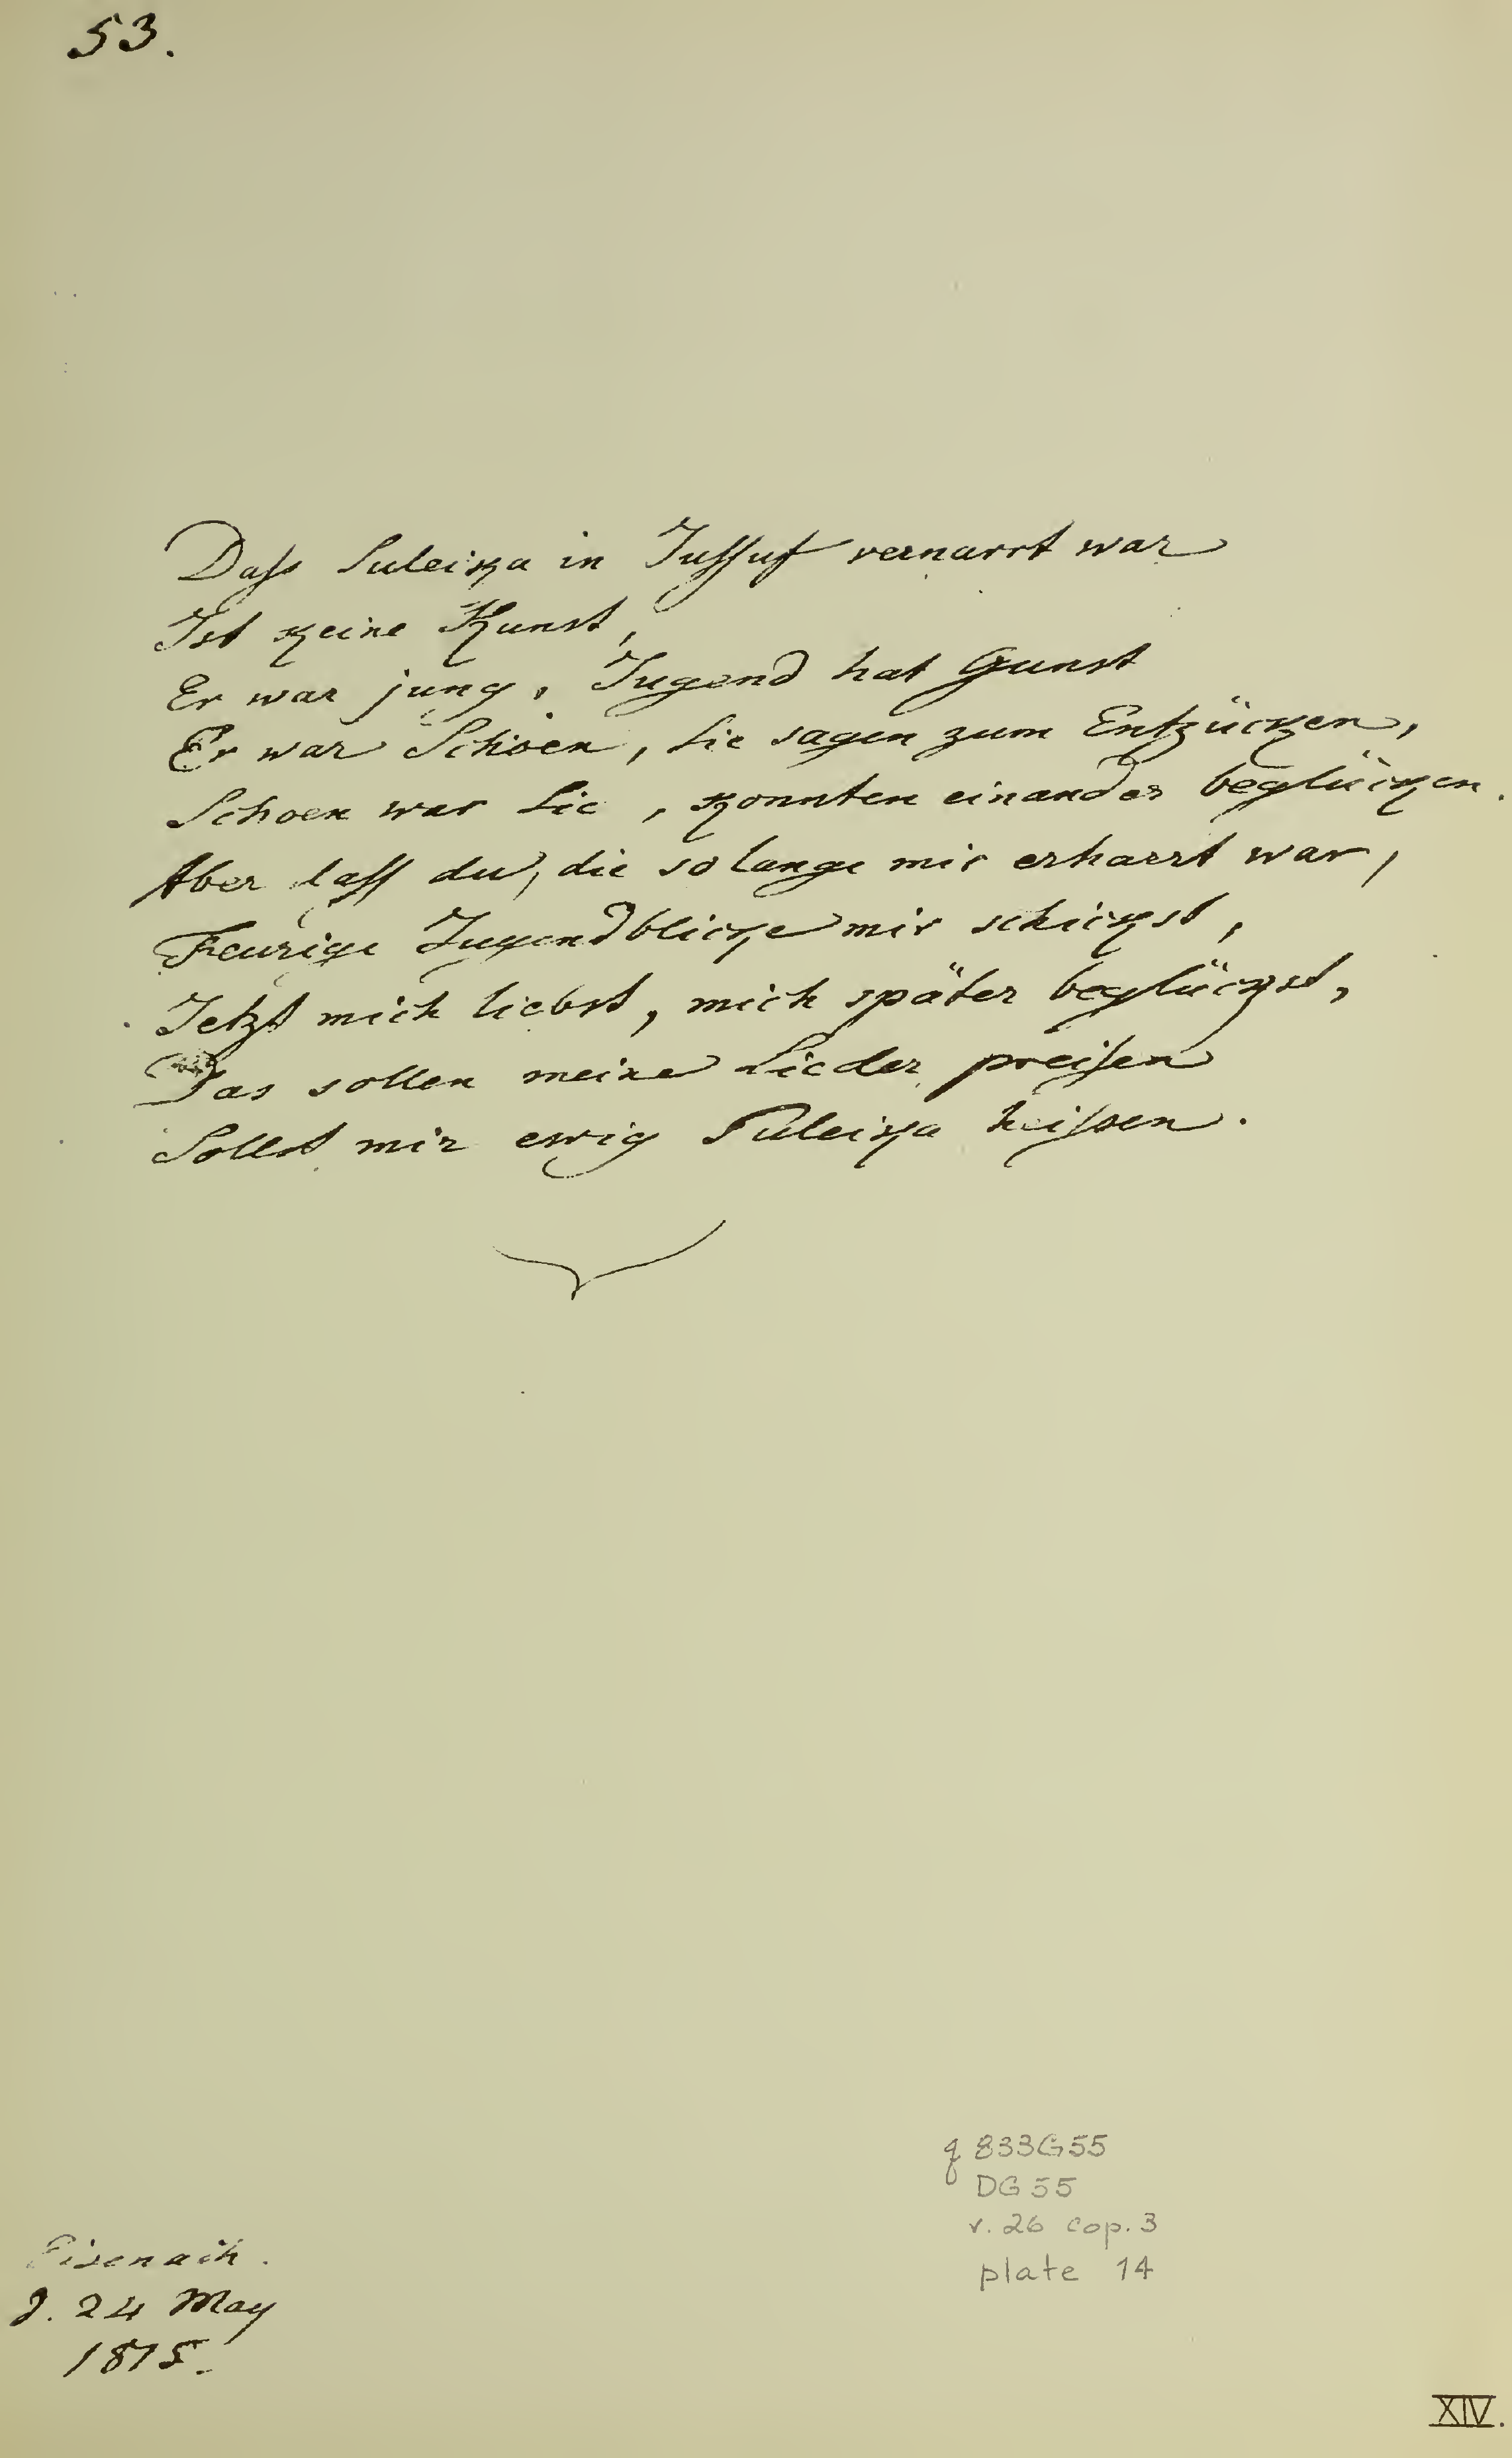 53.
Daſs Suleika in Juſſuf vernarrt war
Ist keine Kunst,
Er war jung, Jugend hat Gunst
Er war Schoen, Sie sagen zum Entzücken,
Schoen war Sie, konnten einander beglücken.
Aber daſſ du, die so lange mir erharrt war,
Feurige Jugendblicke mir schickst,
Jetzt mich liebst, mich später beglückst,
Das sollen meine Lieder preiſen
Sollst mir ewig Suleika heiſsen.
Eisenach.
d. 24 May
1815.
q 833G55
DG55
v. 26 cop. 3
plate 14
XIV.